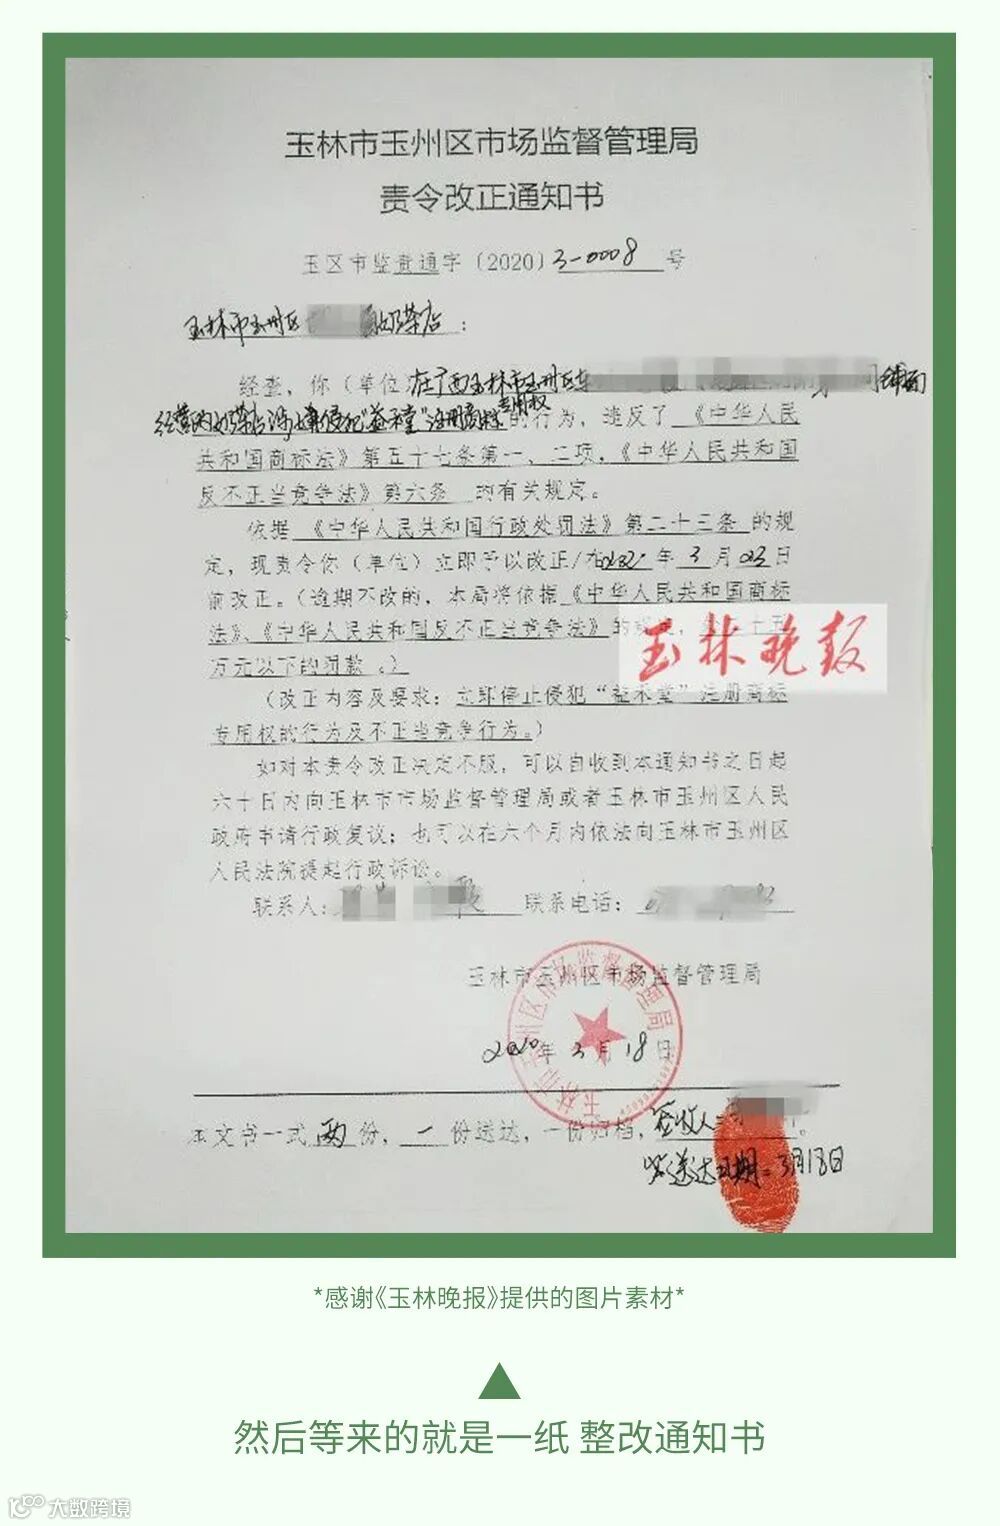 玉林市玉州区市场监督管理局
责令改正通知书
玉区市监责通字（2020）3-0008号
玉林市玉州区 奶茶店：
经查，你（单位）在广西玉林市玉州区 铺面
经营的奶茶店涉嫌侵犯“益禾堂”注册商标专用权的行为，违反了《中华人民
共和国商标法》第五十七条第一、二项，《中华人民共和国
反不正当竞争法》第六条 的有关规定。
依据《中华人民共和国行政处罚法》第二十三条 的规
定，现责令你（单位）立即予以改正/在 年3月23日
前改正。（逾期不改的，本局将依据《中华人民共和国商标
法》、《中华人民共和国反不正当竞争法》的规定， 十五
万元以下的罚款。）
玉林晚报
（改正内容及要求：立即停止侵犯“益禾堂”注册商标
专用权的行为及不正当竞争行为。）
如对本责令改正决定不服，可以自收到本通知书之日起
六十日内向玉林市市场监督管理局或者玉林市玉州区人民
政府申请行政复议；也可以在六个月内依法向玉林市玉州区
人民法院提起行政诉讼。
联系人： 联系电话：
玉林市玉州区市场监督管理局
玉林市玉州区市场监督管理局
2020年3月18日
本文书一式两份，一份送达，一份归档，签收人： 。
送达日期：3月18日
*感谢《玉林晚报》提供的图片素材*
然后等来的就是一纸 整改通知书
大数跨境